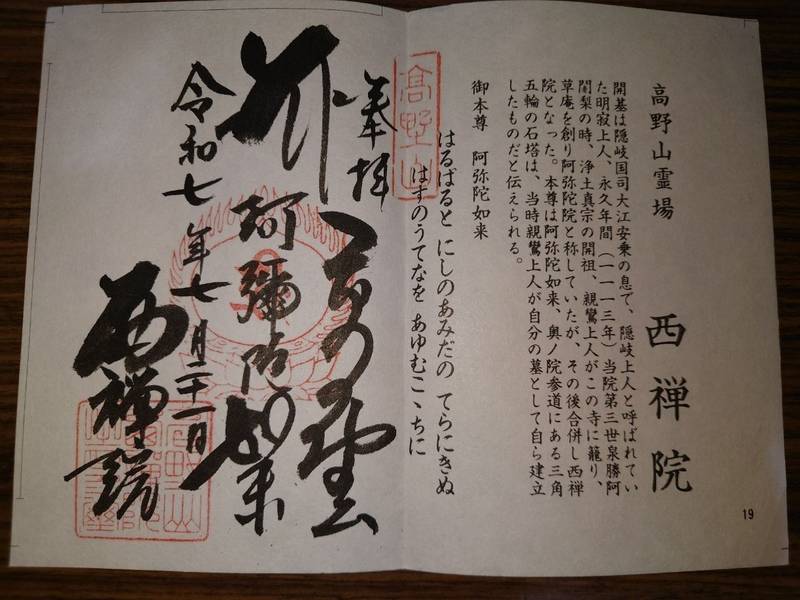 高野山霊場　西禅院
開基は隠岐国司大江安乗の息で、隠岐上人と呼ばれてい
た明寂上人、永久年間（一一一三年）当院第三世泉勝阿
闍梨の時、浄土真宗の開祖、親鸞上人がこの寺に籠り、
草庵を創り阿弥陀院と称していたが、その後合併し西禅
院となった。本尊は阿弥陀如来、奥ノ院参道にある三角
五輪の石塔は、当時親鸞上人が自分の墓として自ら建立
したものだと伝えられる。
御本尊　阿弥陀如来
はるばると にしのあみだの てらにきぬ
はすのうてなを あゆむこゝちに
19
高野山
奉拝
阿彌陀如来
令和七年七月二十一日
西禅院